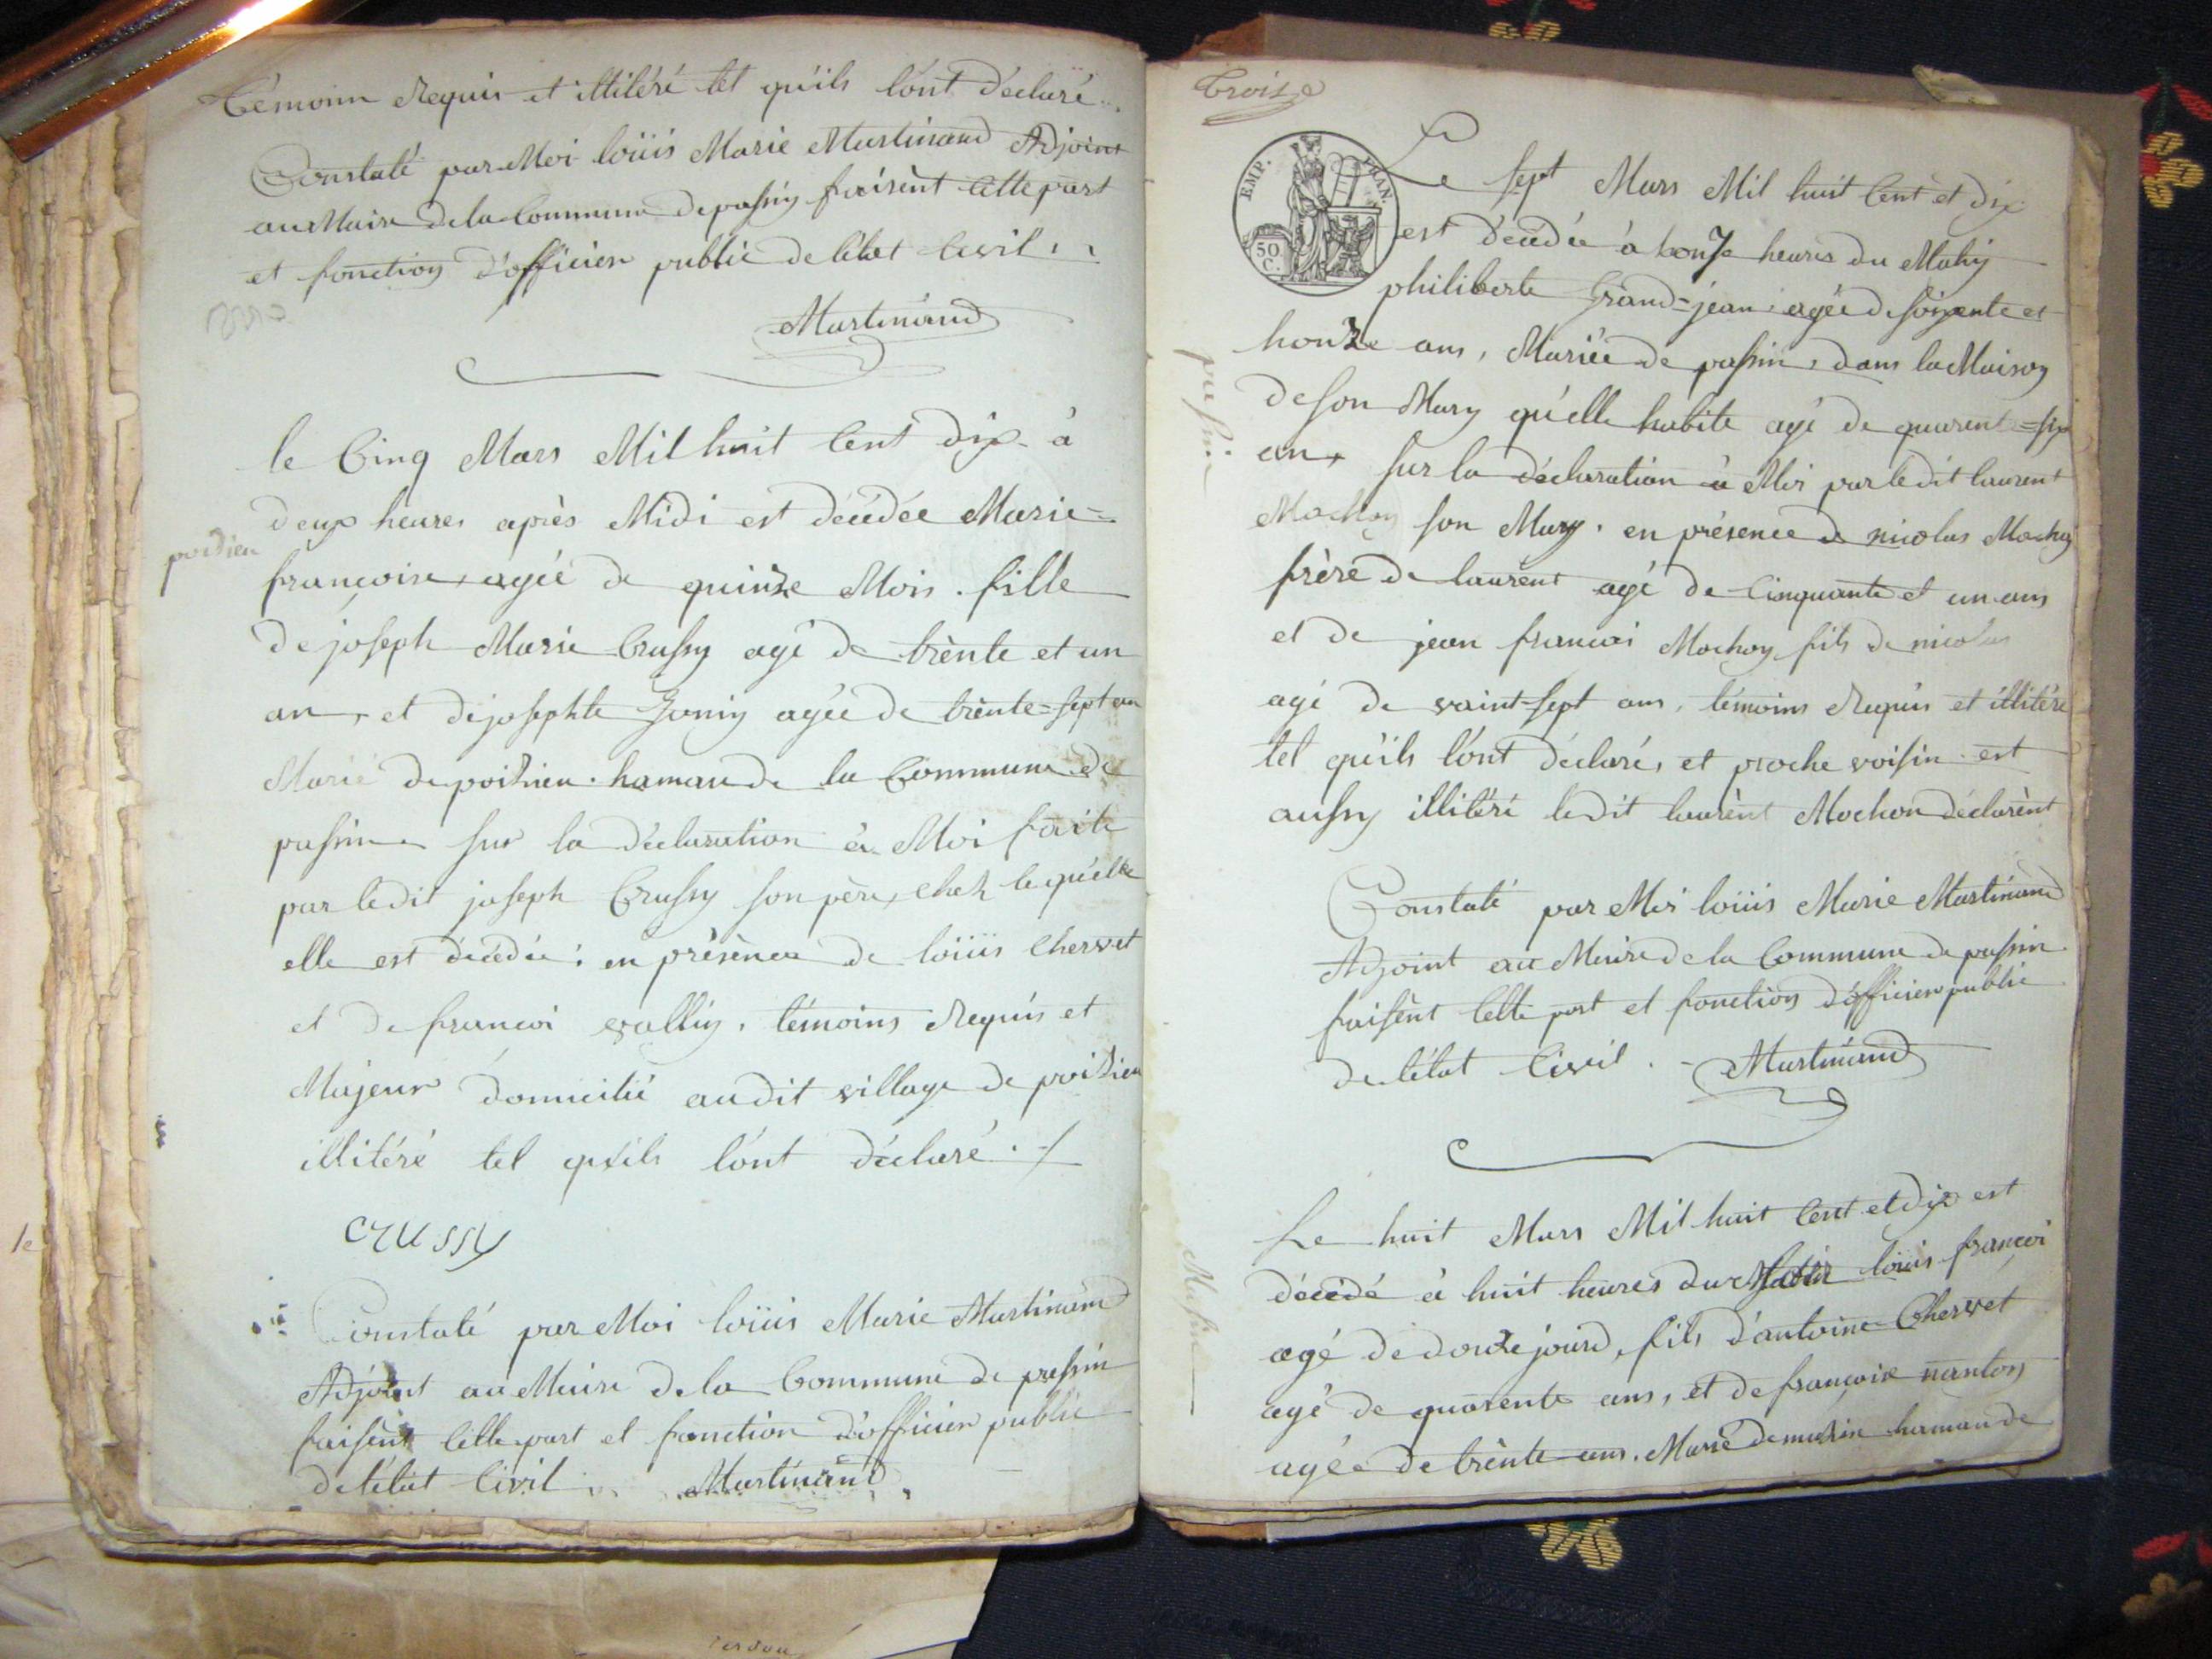 témoinn Requis et illitéré tel qu'ils l'ont déclaré
Constaté par Moi loüis Marie Martinand Adjoint
au Maire de la Commune de passin faisènt cette part
et fonction d'officier public de l'état Civil
Martinand
le Cinq Mars Mil huit Cent dix à
deux heures après Midi est décédée Marie=
poisieu
françoise, agée de quinze Mois. fille
de joseph Marie Crussy agé de trènte et un
an, et de josephte agée de trènte=sept an
Marié de poisieu. hamau de la Commune de
passin sur la déclaration à Moi faite
par ledit joseph Crussy son père, chez lequelle
elle est décédée; en présènce de loüis Chervet
et de françoi vallin, témoins Requis et
Majeur domicilié audit village de poisieu
illitéré tel qu'ils l'ont déclaré./
CRUSSY
Constaté par Moi loüis Marie Martinand
Adjoint au Maire de la Commune de passin
faisènt cette part et fonction d'officier public
de l'état Civil Martinand
troise
EMP. FRAN.
50 C.
Le sept Mars Mil huit Cent et dix
est décédée à honze heures du Matin
philiberte Grand=jean, agée de soixente et
honze ans, Mariée de passin, dans la Maison
passin
de son Mary qu'elle habite agé de quarente=six
an, sur la déclaration à Moi par ledit laurent
Mochon son Mary. en présence de nicolas Mochon
frère de laurènt agé de Cinquante et un ans
et de jean françoi Mochon fils de nicolas
agé de vaint=sept ans, témoins Requis et illitéré
tel qu'ils l'ont déclaré, et proche voisin est
aussy illitéré ledit laurènt Mochon déclarènt
Constaté par Moi loüis Marie Martinand
Adjoint au Maire de la Commune de passin
faisènt cette part et fonction d'officier public
de l'état Civil. Martinand
Le huit Mars Mil huit Cent et dix est
décédé à huit heures du Matin loüis françoi
agé de douze jours, fils d'antoine Chervet
agé de quarente ans, et de françoise nanton
agée de trènte ans. Marié de hamau de